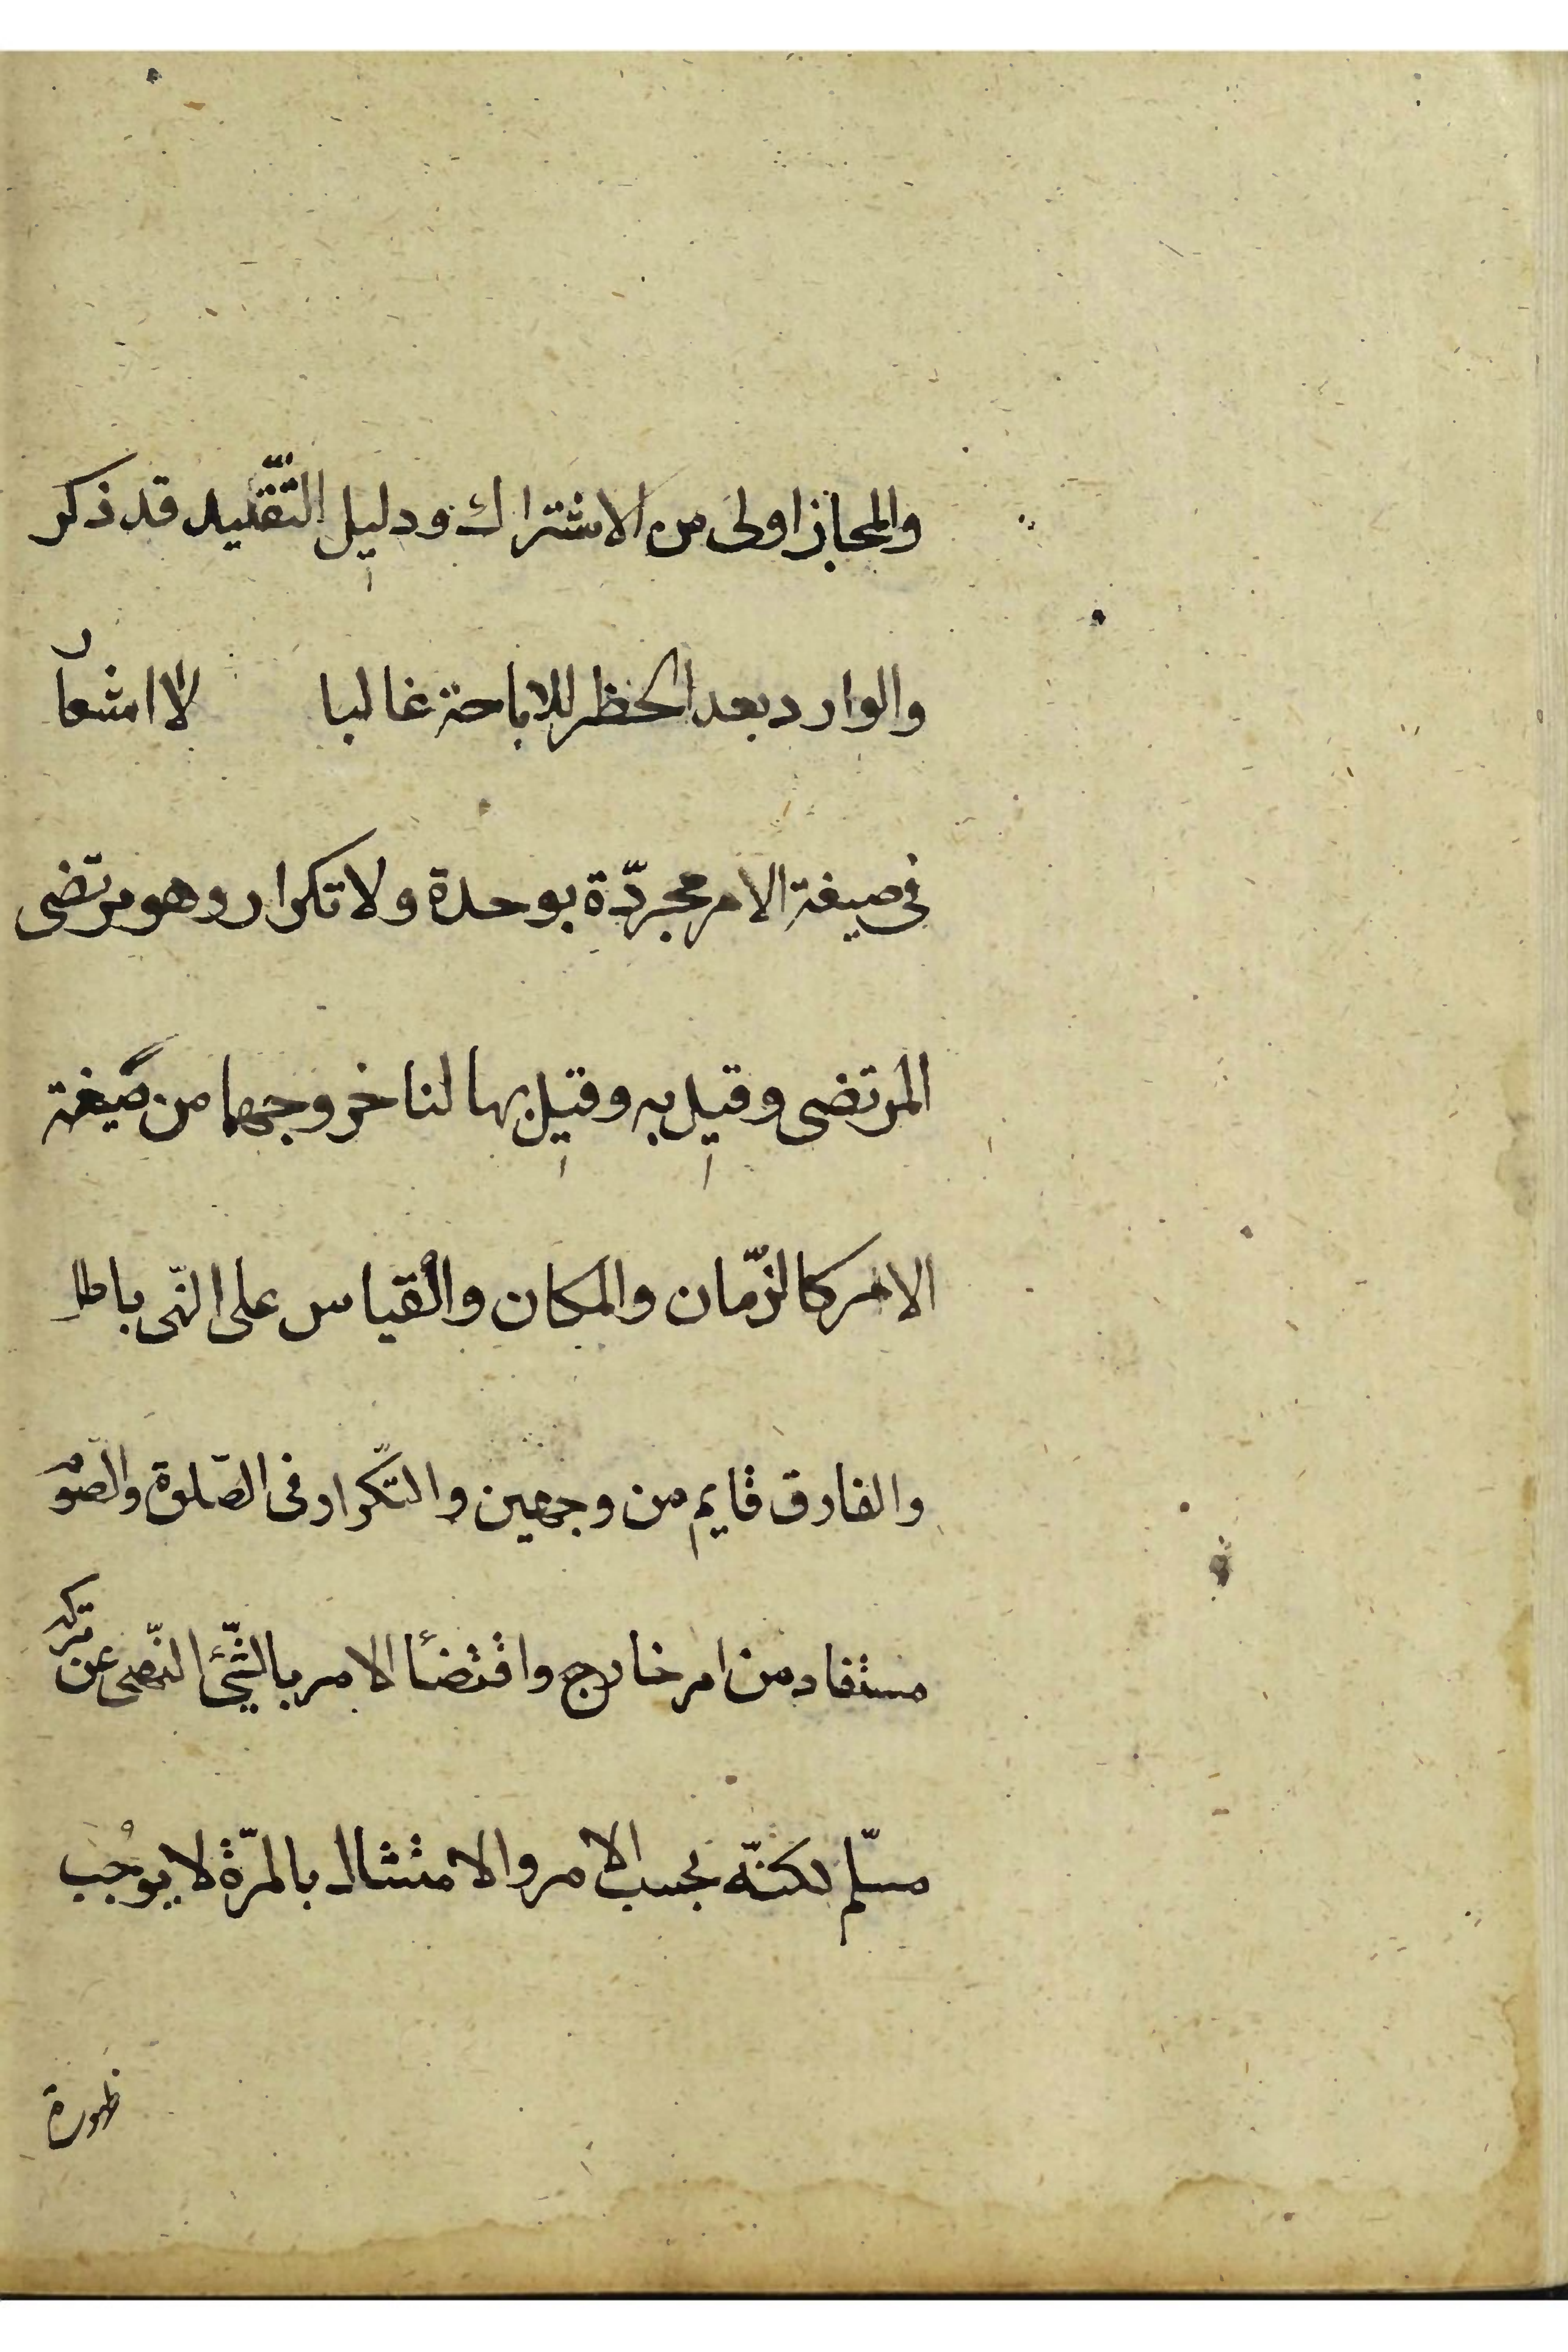 والمجاز اولى من الاشتراك ودليل التّقييد قد ذكر
والوارد بعد الحظر للاباحة غالبا لا اشعا
فى صيغة الامر مجرّدة بوحدة ولا تكرار وهو مرتضى
المرتضى وقيل به وقيل بها لنا خروجهما من صيغة
الامر كالزّمان والمكان والقياس على النّهى باطل
والفارق قايم من وجهين والتّكرار فى الصّلوة والصّوم
مستفاد من امر خارج واقتضئا الامر بالشّئ النّهى عن تركه
مسلّم لكنّه بحسب الامر والامتثال بالمرّة لا يوجب